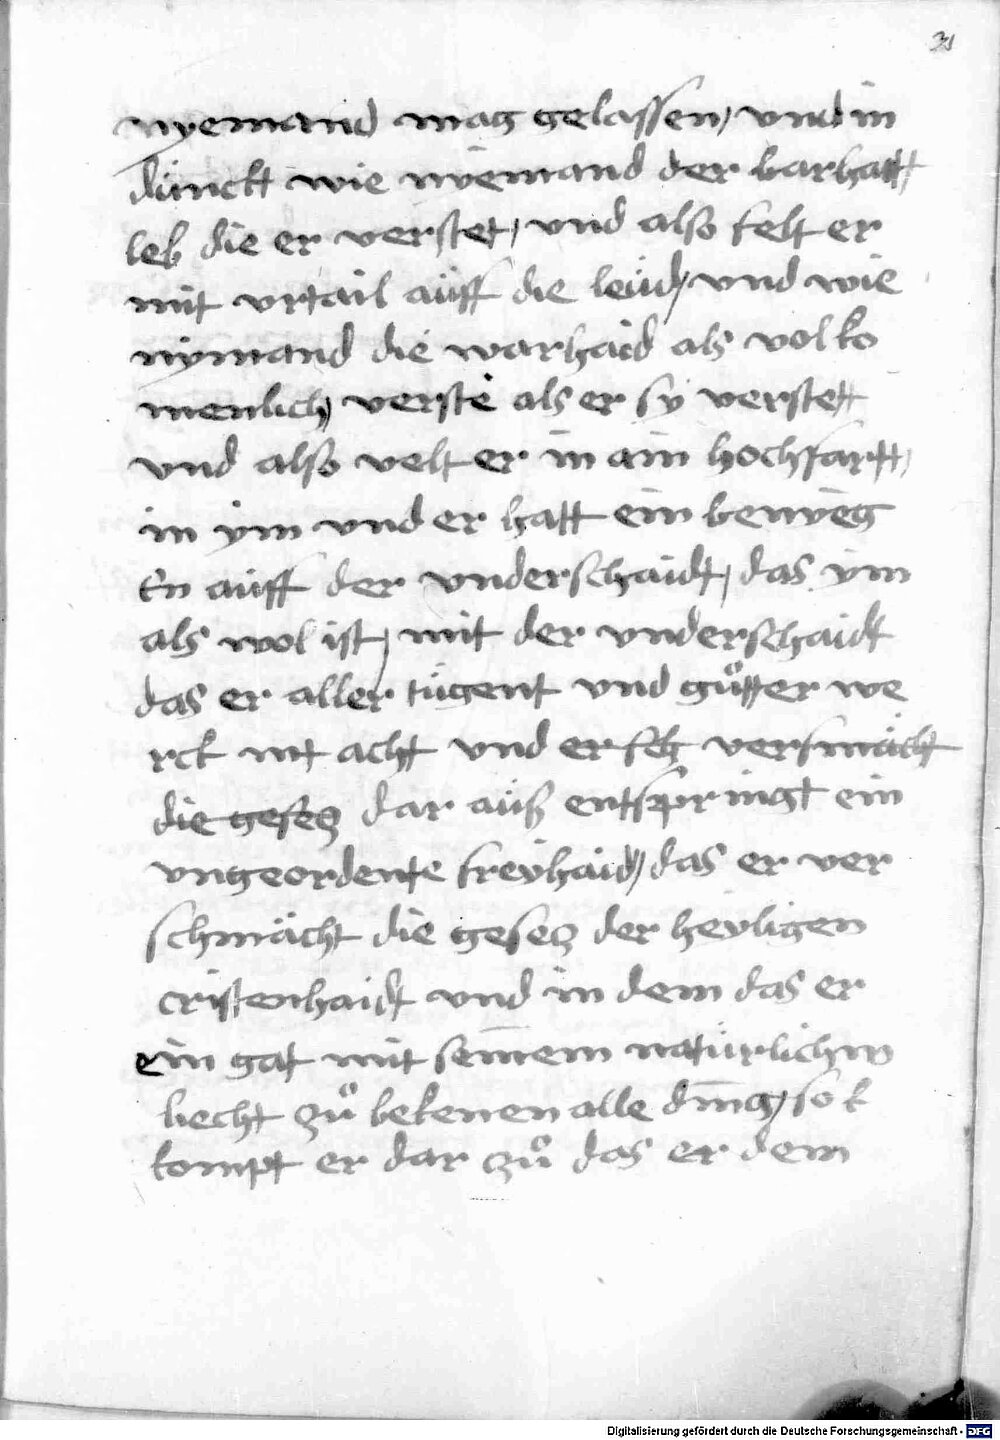 31
nyemand mag gelassen, und in
dünckt wie nyemand der barhatt,
leb die er verstet, und also felt er
mit urtail aüff die leüd, und wie
nymand die warhaid als volko
menlich verste als er sy verstett
und also velt er in ain hochfartt,
in ym und er hatt ein benüeg
en aüff der underschaidt, das ym
als wol ist, mit der underschaidt
das er aller tügent und gůtter we
rck nit acht und er seh versmächt
die gesetz dar aüß entspringt ein
ungeordente freyhaid, das er ver
schmächt die gesetz der heyligen
cristenhaidt und in dem das er
ein gat mit seinem natürlichn
liecht zů bekenen alle ding, so k
kompt er dar zů das er dem
Digitalisierung gefördert durch die Deutsche Forschungsgemeinschaft - DFG